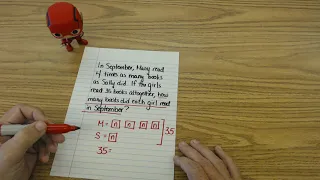 In September, Mary read
4 times as many books
as Sally did. If the girls
read 35 books altogether, how
many books did each girl read
in September?
M = n, n, n n
S = n
35
35=